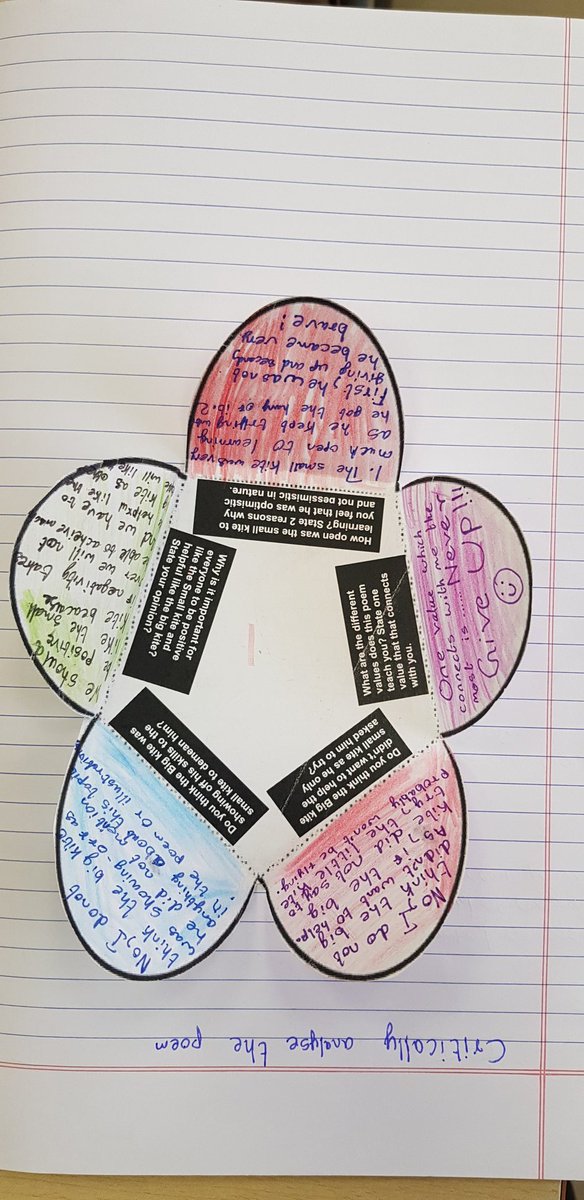 Critically analyse the poem
Do you think the Big kite
didn't want to help the
small kite as he only
asked him to try?
No, I do not
think the big
didn't want to help.
As if the big
kite did not say to
try, the little kite
probably won't be flying.
Do you think the Big kite was
showing off his skills to the
small kite to demean him?
No, I do not
think the big kite
was showing-off as
he did not mention
anything about this topic
in the poem or illustration
Why is it important for
everyone to be positive
like the Small kite and
helpful like the big kite?
State your opinion?
We should
be positive
like the small
kite because
if negativity takes
over we will not
be able to achieve
and we have to
be helpful like the
kite as
we will
How open was the small kite to
learning? State 2 reasons why
you feel that he was optimistic
and not pessimistic in nature.
1. The small kite was very
much open to learning
as he kept trying until
he got the hang of it. 2
First, he was not
giving up and secondly
he became very
brave!
What are the different
values does this poem
teach you? State one
value that that connects
with you.
One value which the
connects with me
most is....... Never
Give UP!!!